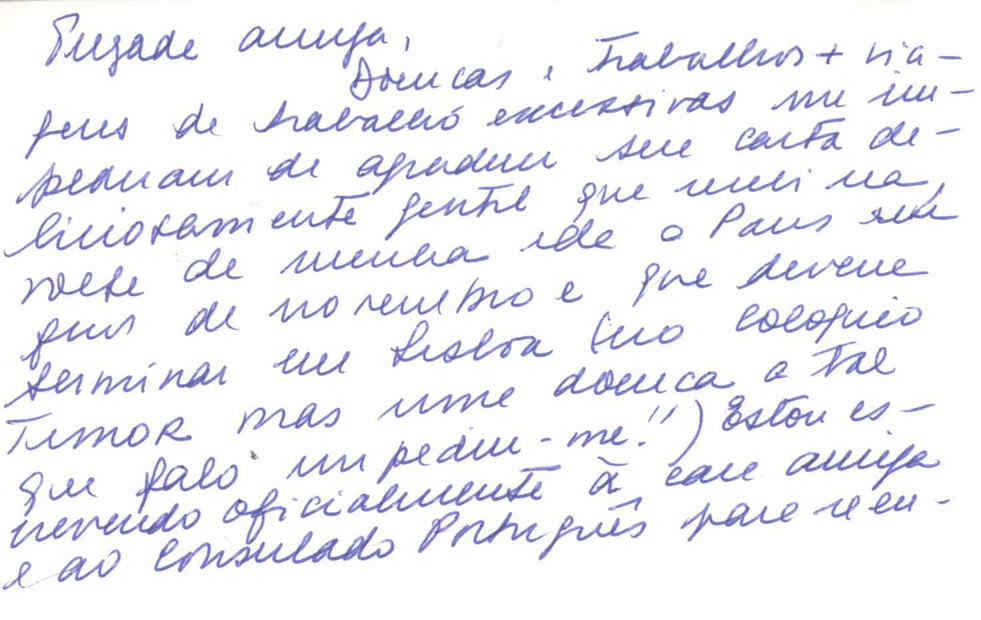 Prezada amiga,
Doenças e trabalhos + via-
gens de trabalho excessivas me im-
pediram de agradecer sua carta de-
liciosamente gentil que recebi na
volta de minha ida a Paris em
de novembro e que deveria
terminar em Lisboa (no coloquio
TIMOR mas uma doença a tal
que falo impediu-me!!) Estou es-
crevendo oficialmente à cara amiga
e ao Consulado Português para